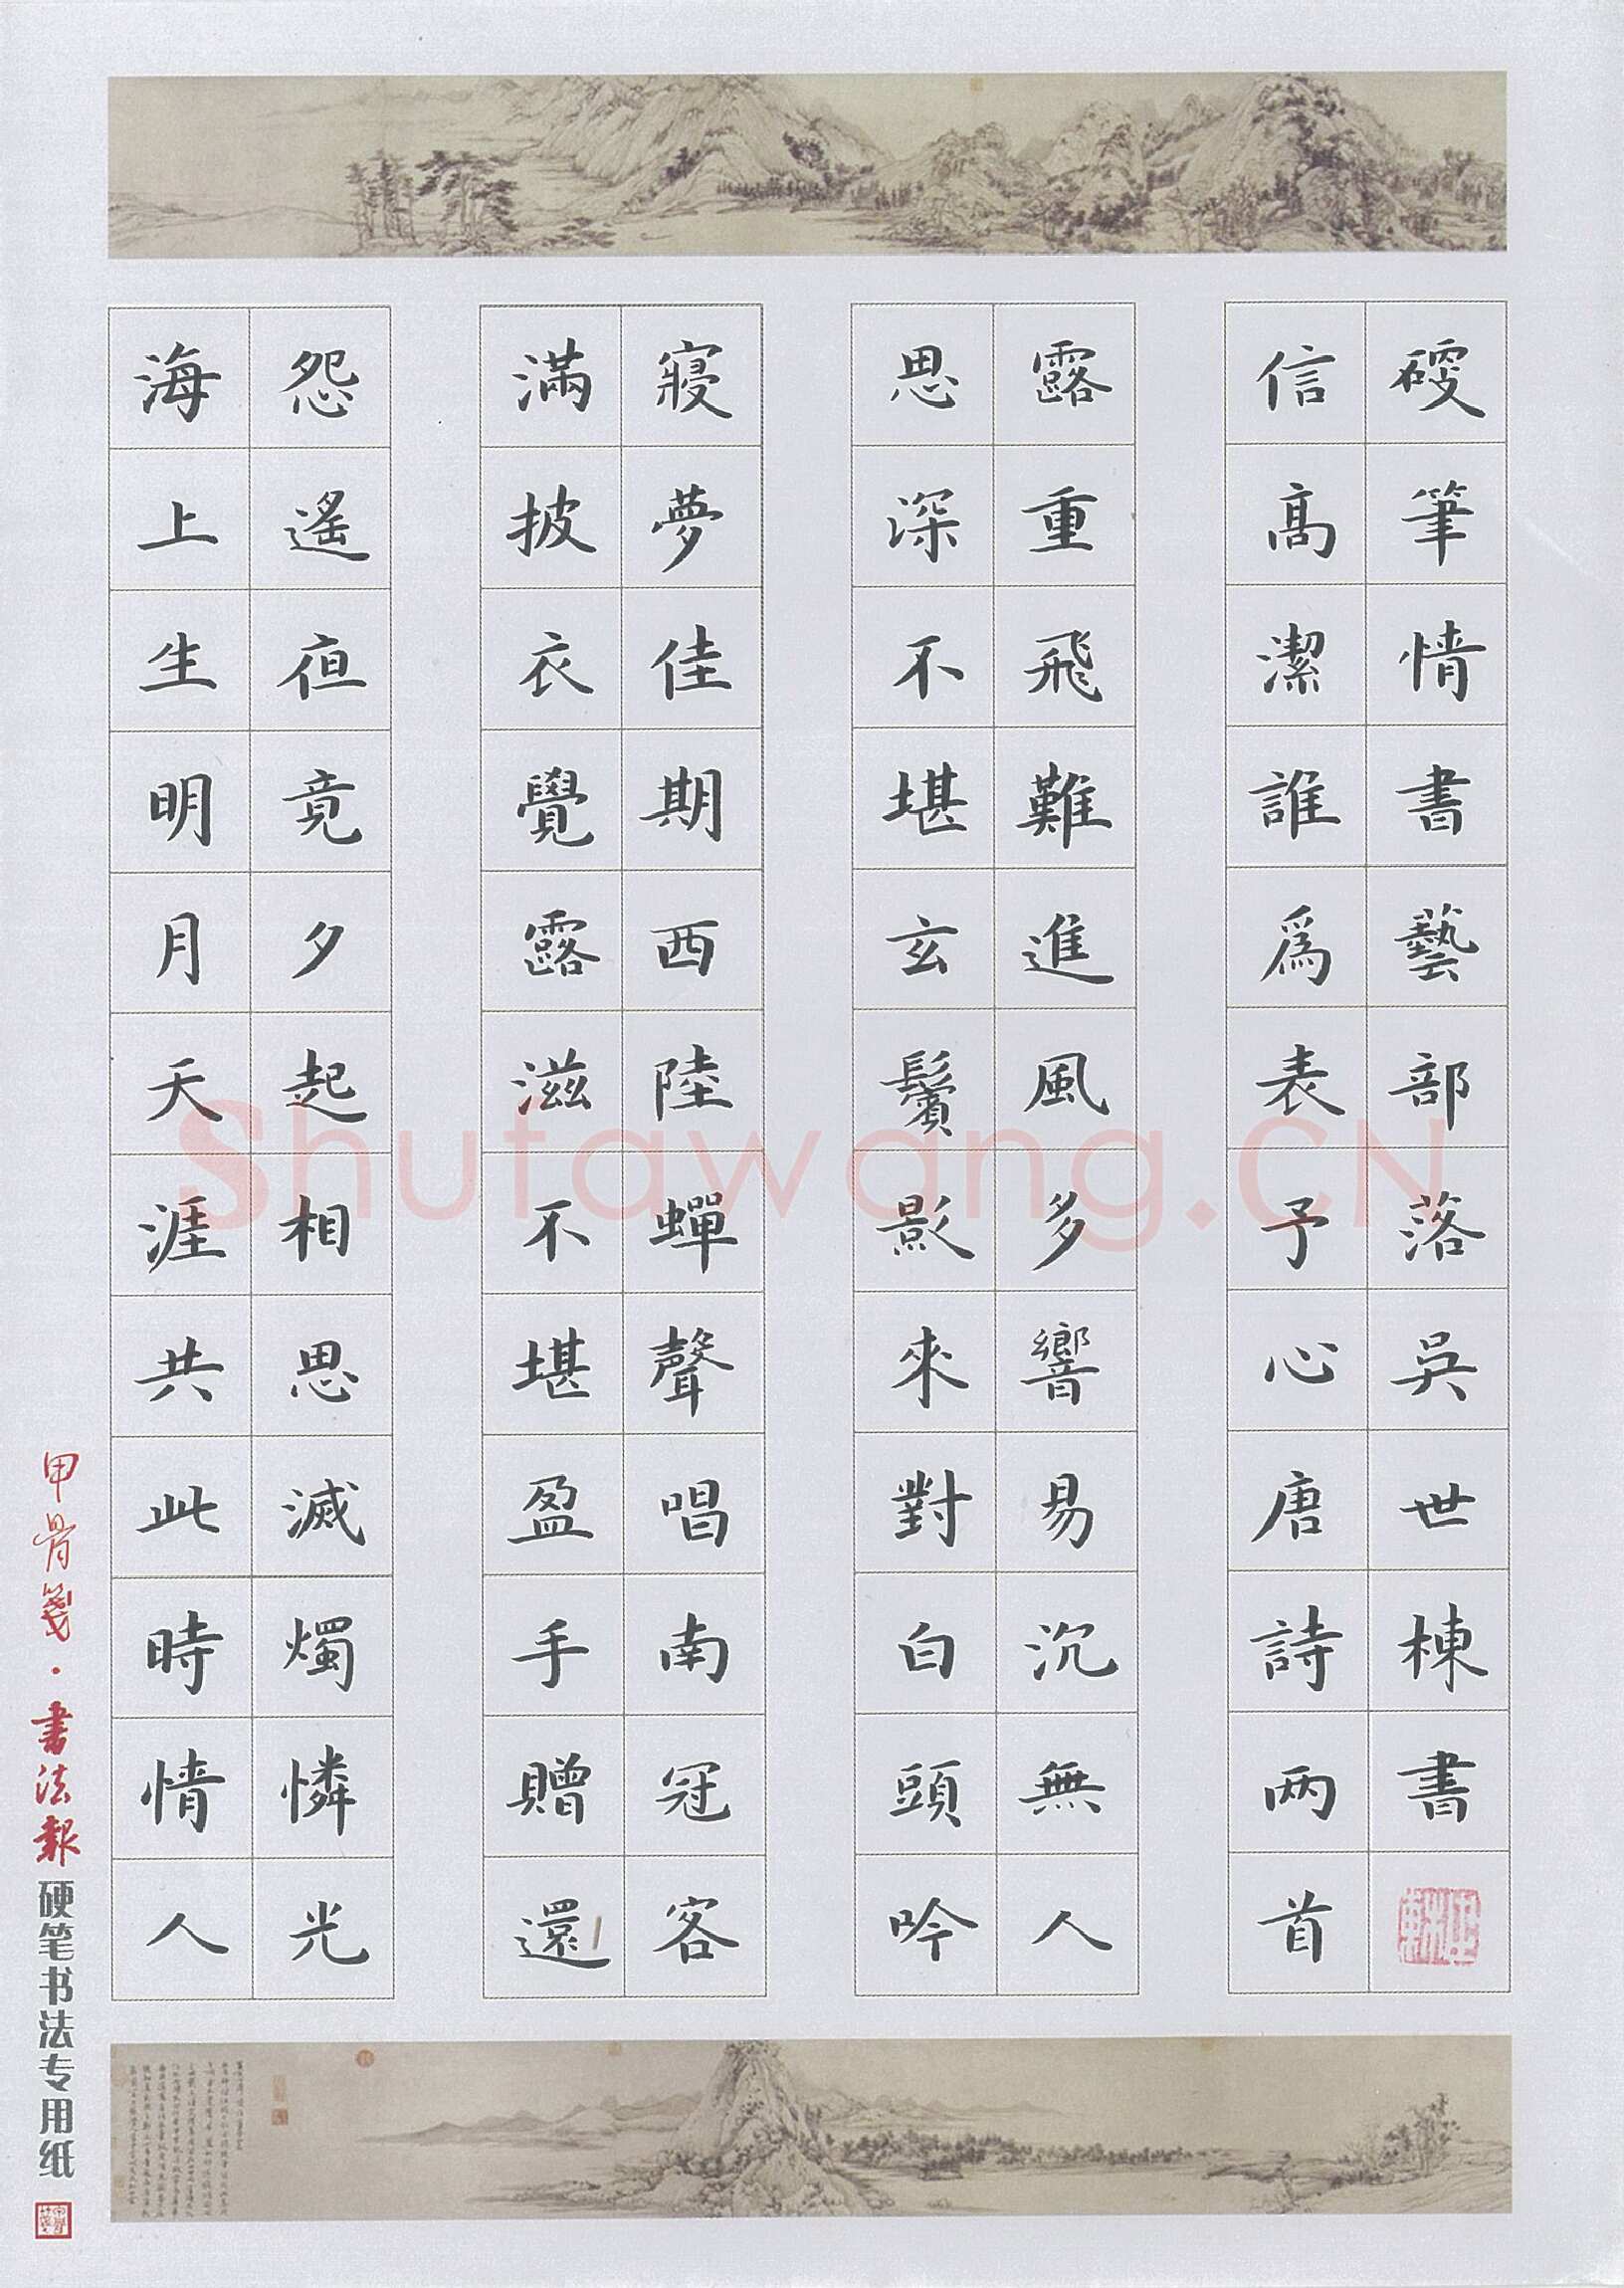 海上生明月天涯共此時情人
怨遙夜竟夕起相思滅燭憐光
滿披衣覺露滋不堪盈手贈還
寢夢佳期西陸蟬聲唱南冠客
思深不堪玄鬢影來對白頭吟
露重飛難進風多響易沉無人
信髙潔誰爲表予心唐詩两首
硬筆情書藝部落吳世棟書
甲骨箋·書法報硬笔书法专用纸
Shufawang.CN